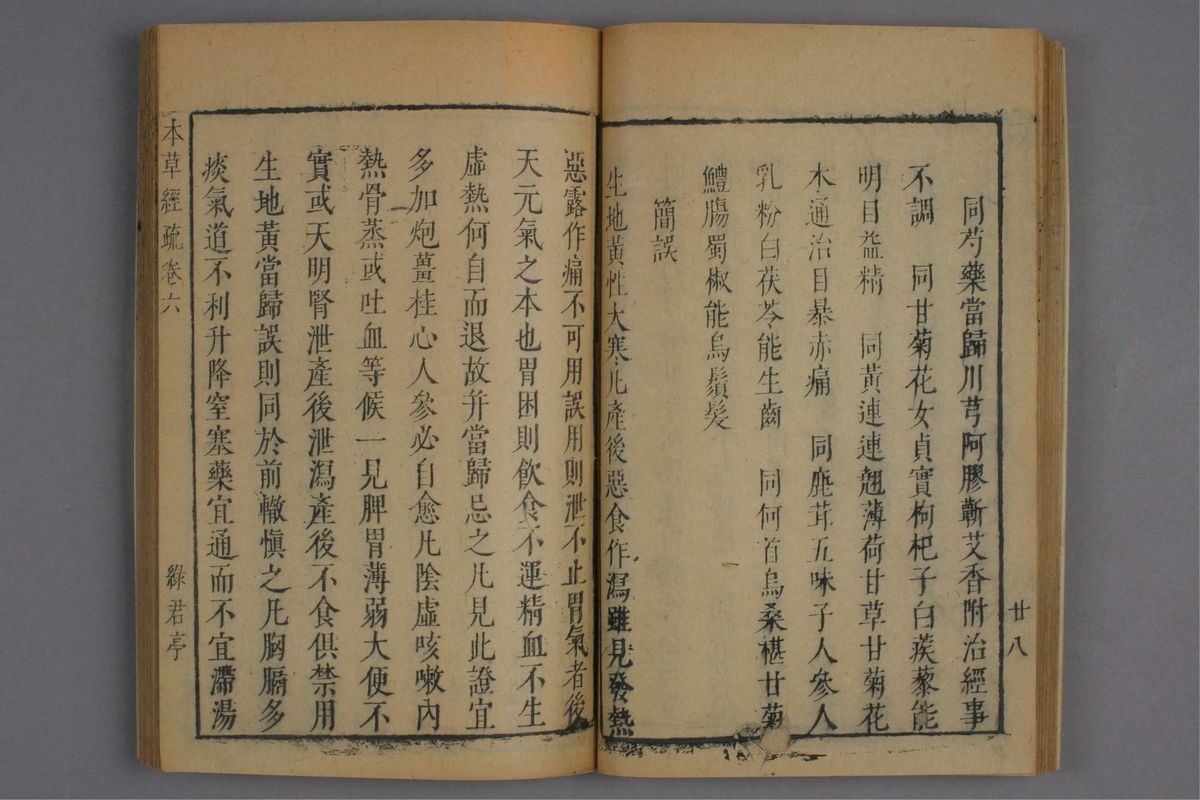 廿八
同芍藥當歸川芎阿膠蘄艾香附治經事
不調　同甘菊花女貞實枸杞子白蒺藜能
明目益精　同黃連連翹薄荷甘草甘菊花
木通治目暴赤痛　同鹿茸五味子人參人
乳粉白茯苓能生齒　同何首烏桑椹甘菊
鱧腸蜀椒能烏鬚髮
簡誤
生地黃性大寒凡產後惡食作瀉雖見發熱
惡露作痛不可用誤用則泄不止胃氣者後
天元氣之本也胃困則飲食不運精血不生
虛熱何自而退故并當歸忌之凡見此證宜
多加炮薑桂心人參必自愈凡陰虛咳嗽內
熱骨蒸或吐血等候一見脾胃薄弱大便不
實或天明腎泄產後泄瀉產後不食俱禁用
生地黃當歸誤則同於前轍慎之凡胸膈多
痰氣道不利升降窒塞藥宜通而不宜滯湯
本草經疏卷六
綠君亭